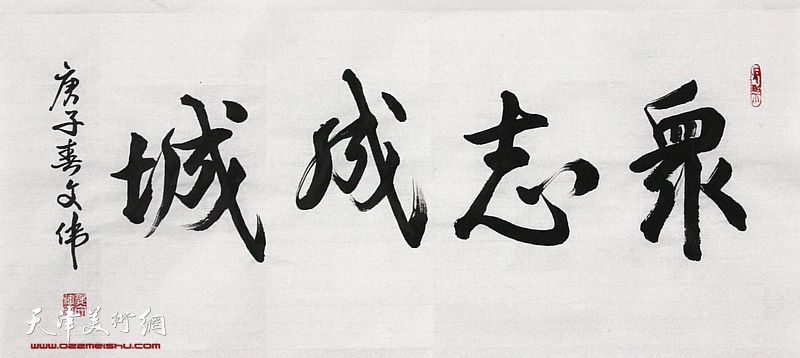 眾志成城
庚子春文伟
天津美術網
www.022meishu.com